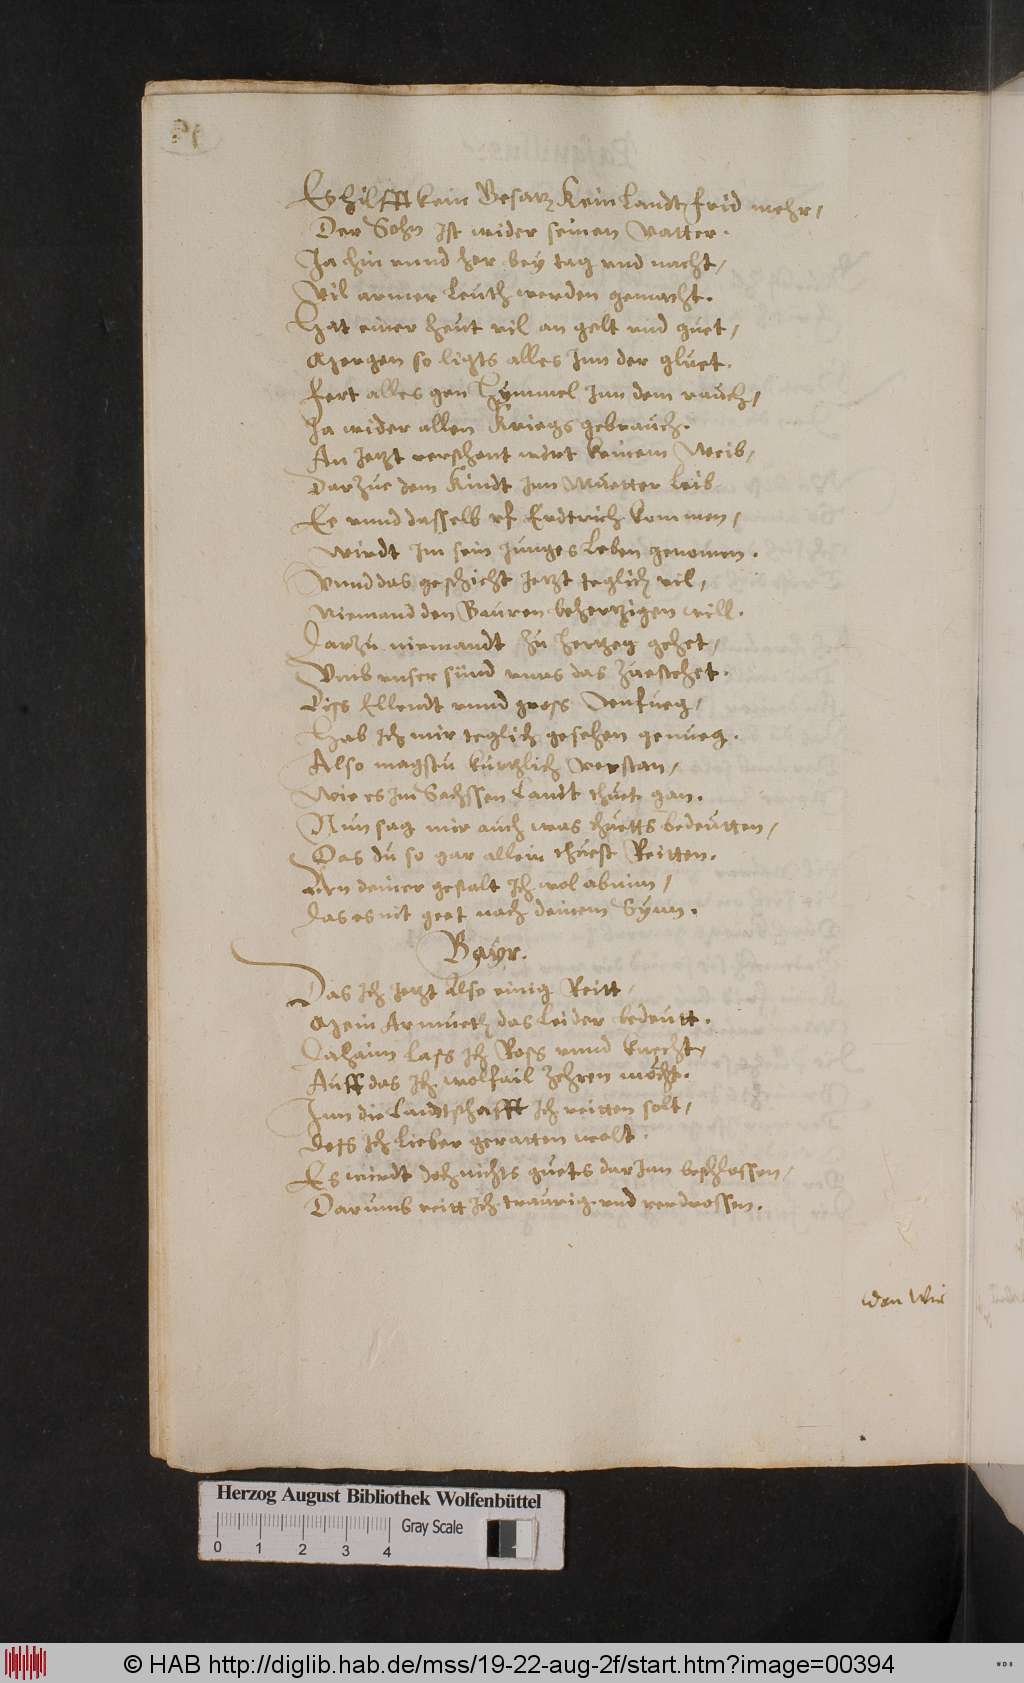 Es hilfft kein Gesatz Kein Landtfrid mehr,
Der Sohn Ist wider seinen Vatter.
Ja hin vnnd her bey tag vnd nacht,
Vil armer Leuth werden gemacht.
Hat einer heut vil an gelt vnd guet,
Morgen so ligts alles Inn der gluet.
Fert alles gen Hymmel Inn dem rauch,
Ja wider allen Kriegs gebrauch.
An Jetzt verschent wirt keinem Weib,
Darzue dem Kindt Inn Muetter leib
Ee vnnd dasselb vf Erdtrich kommen,
Wirdt Im sein Junges Leben genomen.
Vnnd das geschicht Jetzt teglich vil,
Niemand den Bauren behertzigen will.
Darzu niemandt zu hertzen gehet,
Vmb vnser sünd vnns das zuestehet.
Diss Ellendt vnnd gross Vnfueg,
Hab Ich mir teglich gesehen genueg.
Also magstu kürtzlich verstan,
Wie es Im Sachssen Landt thuet gan.
Nun sag mir auch was thuetts bedeutten,
Das du so gar allein thuest Reitten.
An deiner gestalt Ich wol abnim,
Das es nit geet nach deinem Synn.
Bayr.
Das Ich Jetzt Also einig Reitt,
Mein Armueth das Leider bedeutt.
Dahaim lass Ich Ross vnnd knecht,
Auff das Ich wolfail zehren möcht.
Inn die Landtschafft Ich reitten solt,
Dess Ich Lieber geratten wolt.
Es wirdt doch nichts guets dar Inn beschlossen,
Darumb reitt Ich traurig vnd verdrossen.
Den Wir
Herzog August Bibliothek Wolfenbüttel
Gray Scale
0 1 2 3 4
© HAB http://diglib.hab.de/mss/19-22-aug-2f/start.htm?image=00394